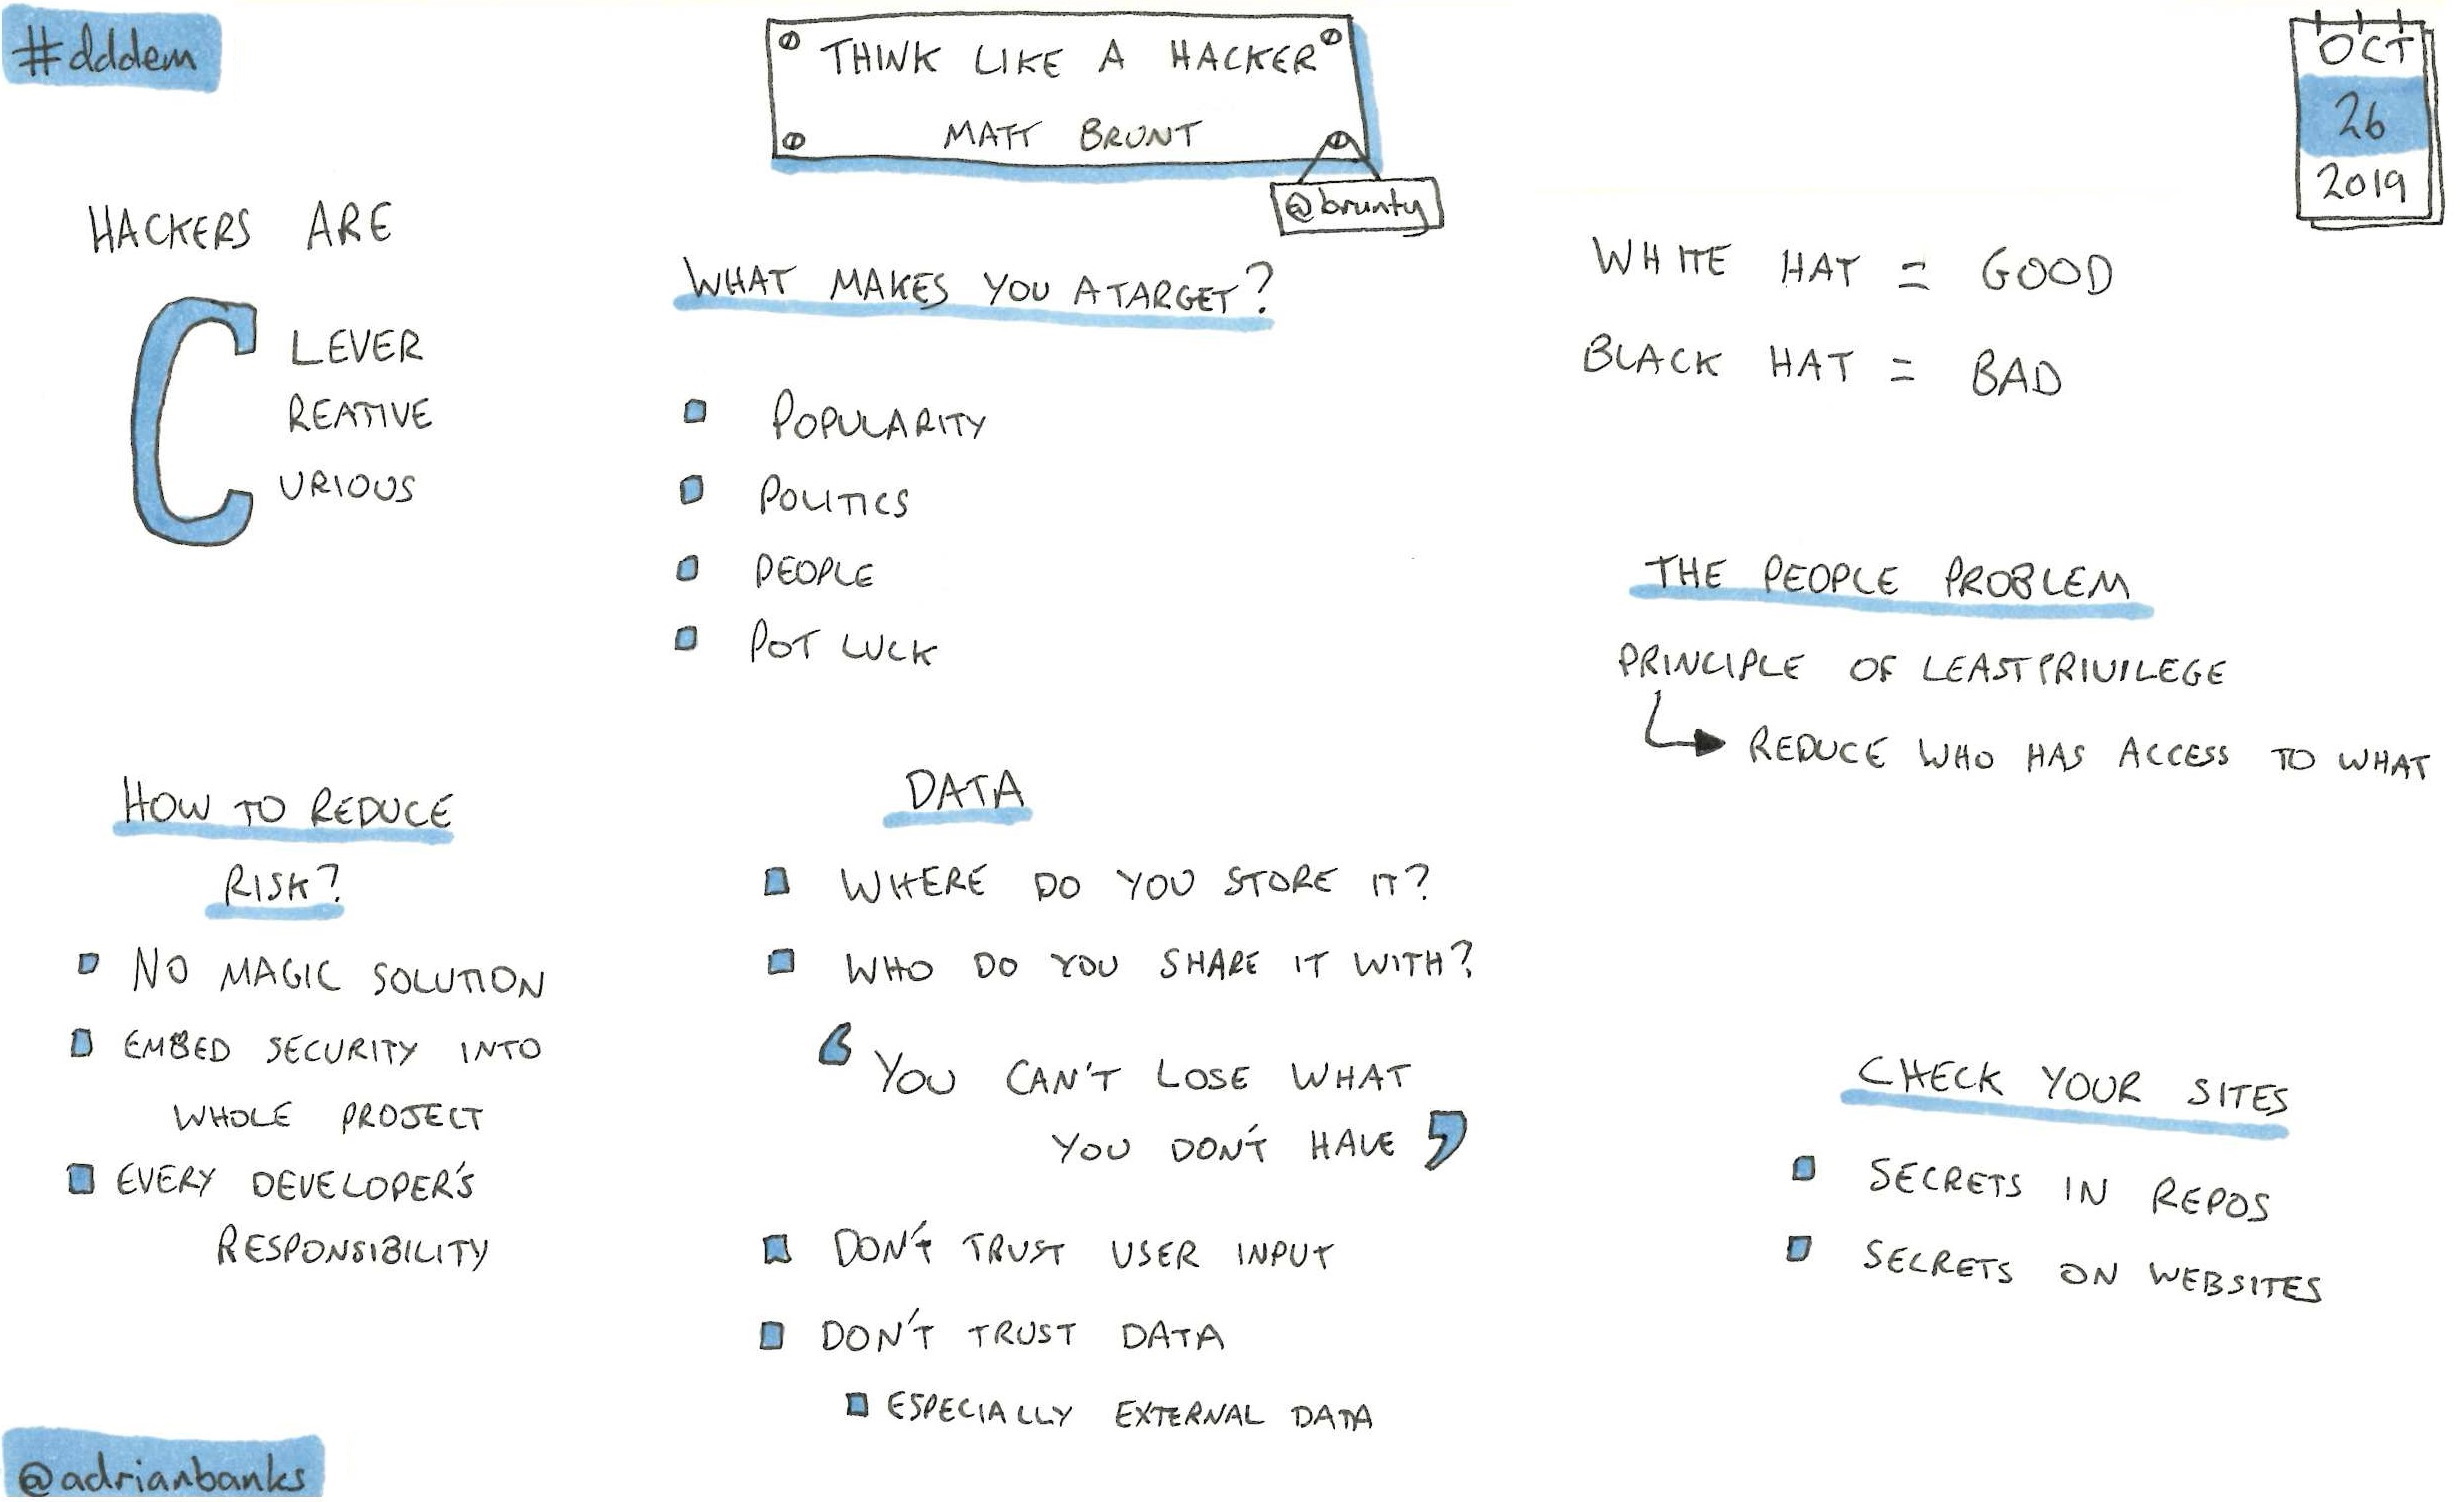 #dddem
THINK LIKE A HACKER
MATT BRUNT
@brunty
OCT
26
2019
HACKERS ARE
C
LEVER
REATIVE
URIOUS
WHAT MAKES YOU A TARGET?
POPULARITY
POLITICS
PEOPLE
POT LUCK
WHITE HAT = GOOD
BLACK HAT = BAD
THE PEOPLE PROBLEM
PRINCIPLE OF LEAST PRIVILEGE
REDUCE WHO HAS ACCESS TO WHAT
HOW TO REDUCE
RISK?
NO MAGIC SOLUTION
EMBED SECURITY INTO
WHOLE PROJECT
EVERY DEVELOPER'S
RESPONSIBILITY
DATA
WHERE DO YOU STORE IT?
WHO DO YOU SHARE IT WITH?
‘YOU CAN'T LOSE WHAT
YOU DON'T HAVE’
DON'T TRUST USER INPUT
DON'T TRUST DATA
ESPECIALLY EXTERNAL DATA
CHECK YOUR SITES
SECRETS IN REPOS
SECRETS ON WEBSITES
@adrianbanks